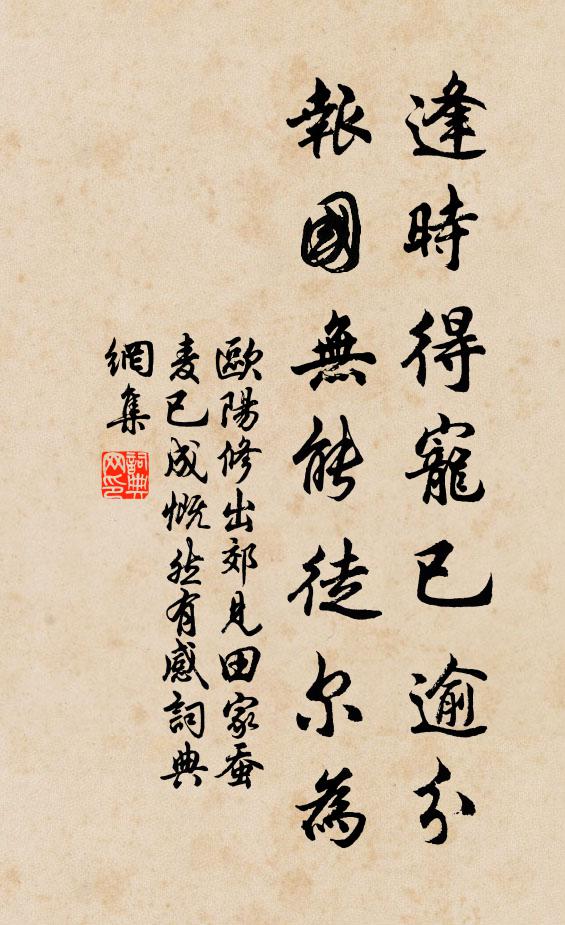 逢時得寵已逾分
報國無能徒尔為
歐陽修出郊見田家蚕
麦已成慨然有感詞典
網集
詞典网印